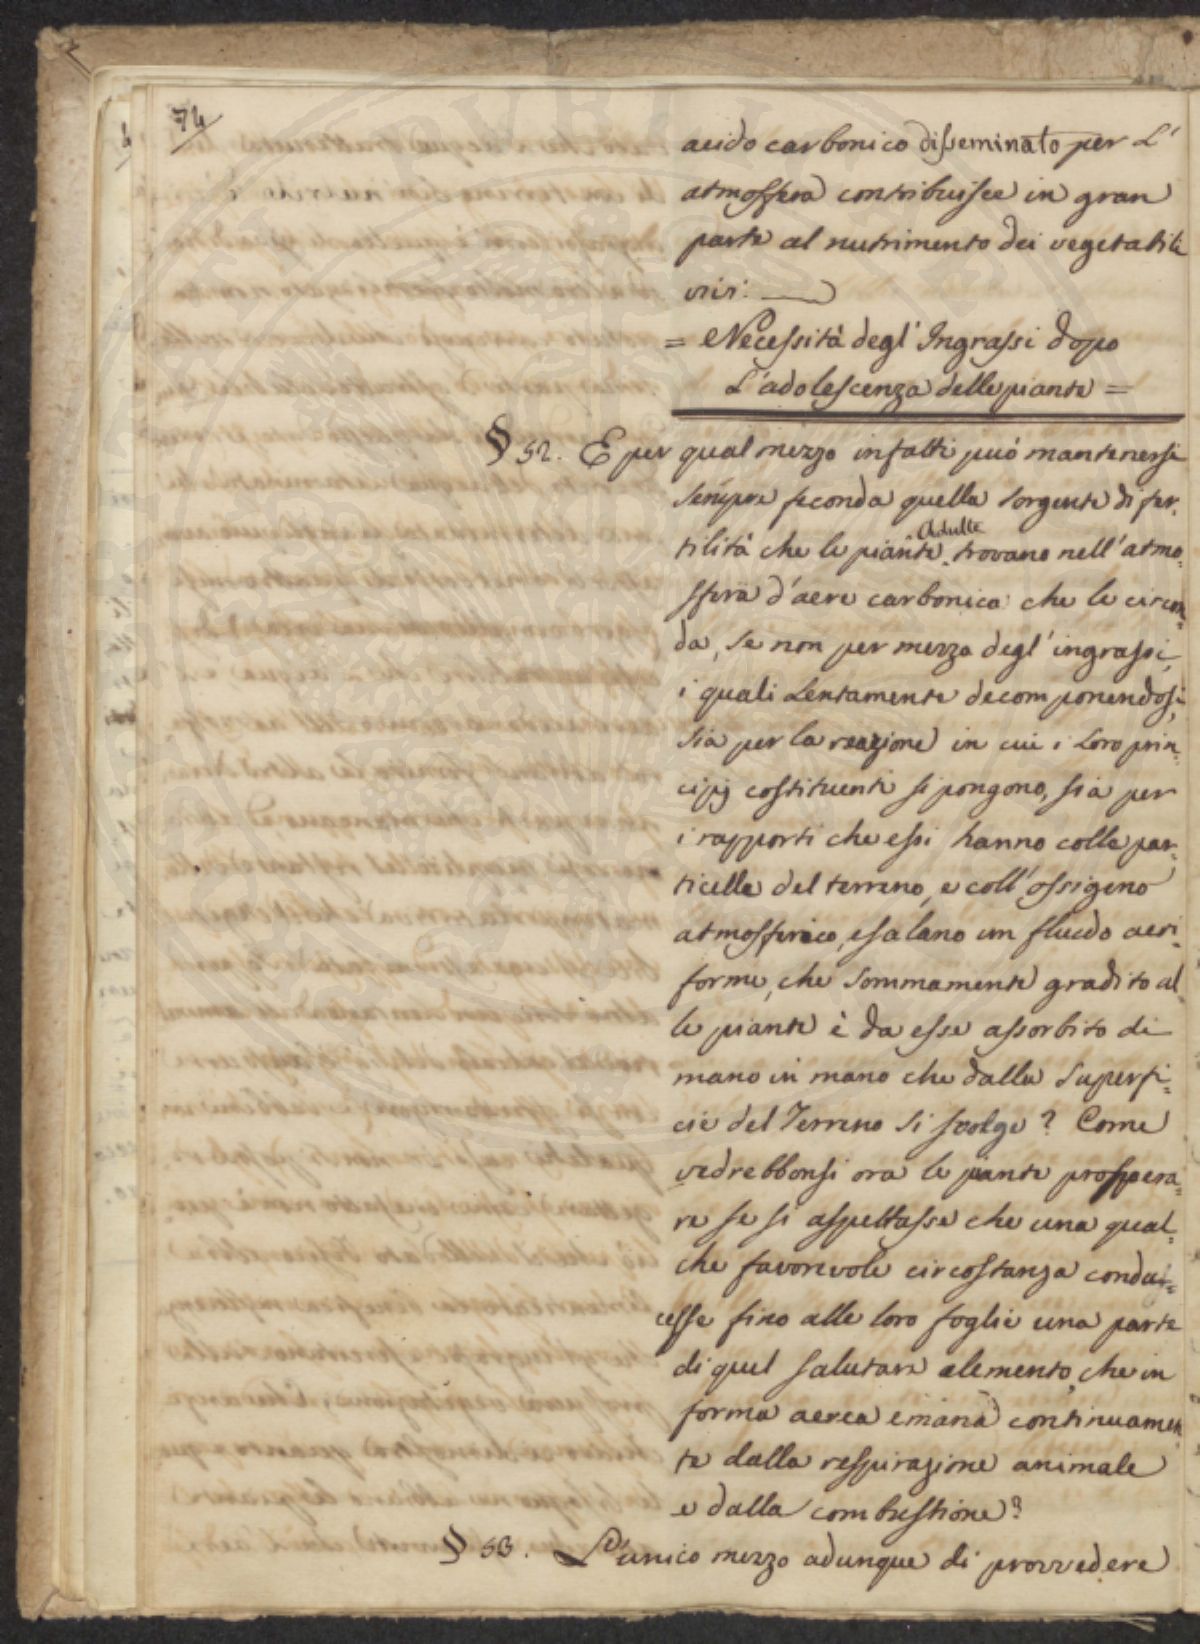 74
acido carbonico disseminato per L'
atmosfera contribuisce in gran
parte al nutrimento dei vegetabili
vivi. —
= Necessità degl' Ingrassi dopo
L'adolescenza delle piante =
§ 52. E per qual mezzo infatti può mantenersi
sempre feconda quella sorgente di fer-
tilità che le piante adulte trovano nell' atmo-
sfera d'aere carbonico che le circon-
da, se non per mezzo degl' ingrassi,
i quali Lentamente decomponendosi,
sia per la reazione in cui i Loro prin-
cipj costituenti si pongono, sia per
i rapporti che essi hanno colle par-
ticelle del terreno, e coll' ossigeno
atmosferico, esalano un fluido aeri-
forme, che sommamente gradito al-
le piante è da esse assorbito di
mano in mano che dalla Superfi-
cie del Terreno si svolge? Come
vedrebbonsi ora le piante prospera-
re se si aspettasse che una qual-
che favorevole circostanza condu-
cesse fino alle loro foglie una parte
di quel salutare elemento, che in
forma aerea emana continuamen-
te dalla respirazione animale
e dalla combustione?
§ 53. L'unico mezzo adunque di provvedere